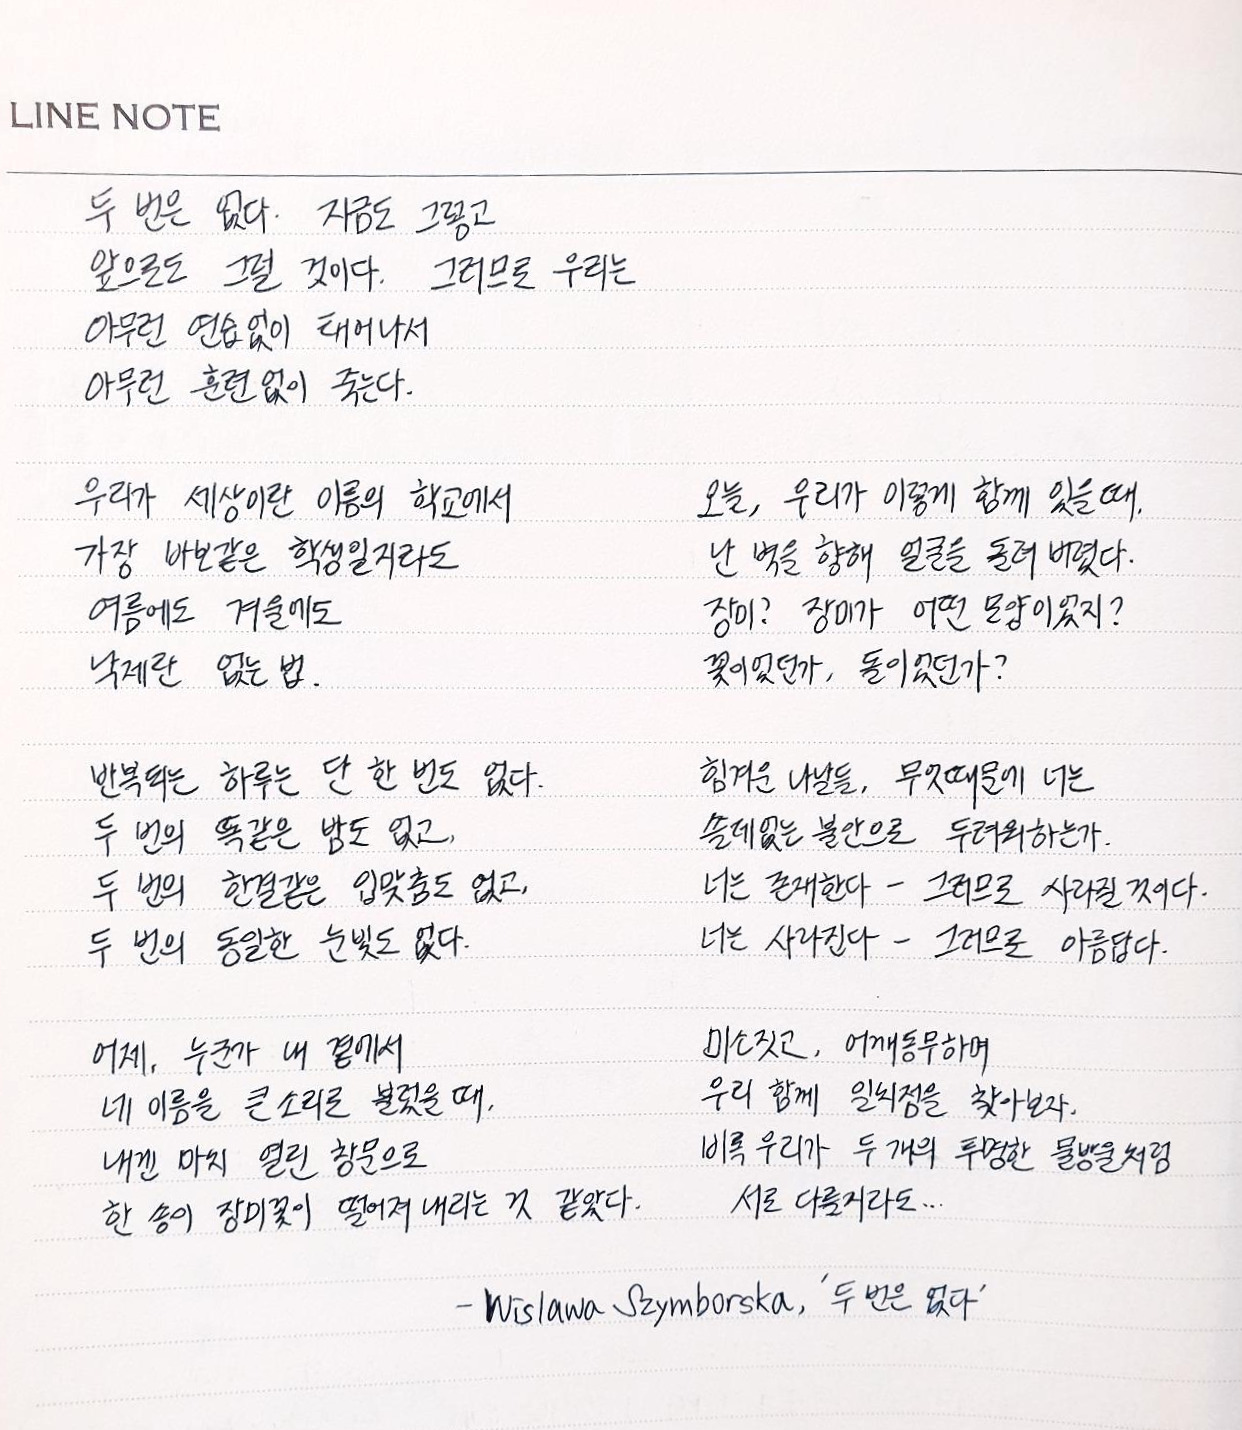 LINE NOTE
두 번은 없다. 지금도 그렇고
앞으로도 그럴 것이다. 그러므로 우리는
아무런 연습없이 태어나서
아무런 훈련없이 죽는다.
우리가 세상이란 이름의 학교에서
가장 바보같은 학생일지라도
여름에도 겨울에도
낙제란 없는 법.
반복되는 하루는 단 한 번도 없다.
두 번의 똑같은 밤도 없고,
두 번의 한결같은 입맞춤도 없고,
두 번의 동일한 눈빛도 없다.
어제, 누군가 내 곁에서
네 이름을 큰소리로 불렀을 때,
내겐 마치 열린 창문으로
한 송이 장미꽃이 떨어져 내리는 것 같았다.
오늘, 우리가 이렇게 함께 있을 때,
난 벽을 향해 얼굴을 돌려 버렸다.
장미? 장미가 어떤 모양이었지?
꽃이었던가, 돌이었던가?
힘겨운 나날들, 무엇때문에 너는
쓸데없는 불안으로 두려워하는가.
너는 존재한다 - 그러므로 사라질 것이다.
너는 사라진다 - 그러므로 아름답다.
미소짓고, 어깨동무하며
우리 함께 일치점을 찾아보자.
비록 우리가 두 개의 투명한 물방울처럼
서로 다를지라도...
- Wislawa Szymborska, '두 번은 없다'